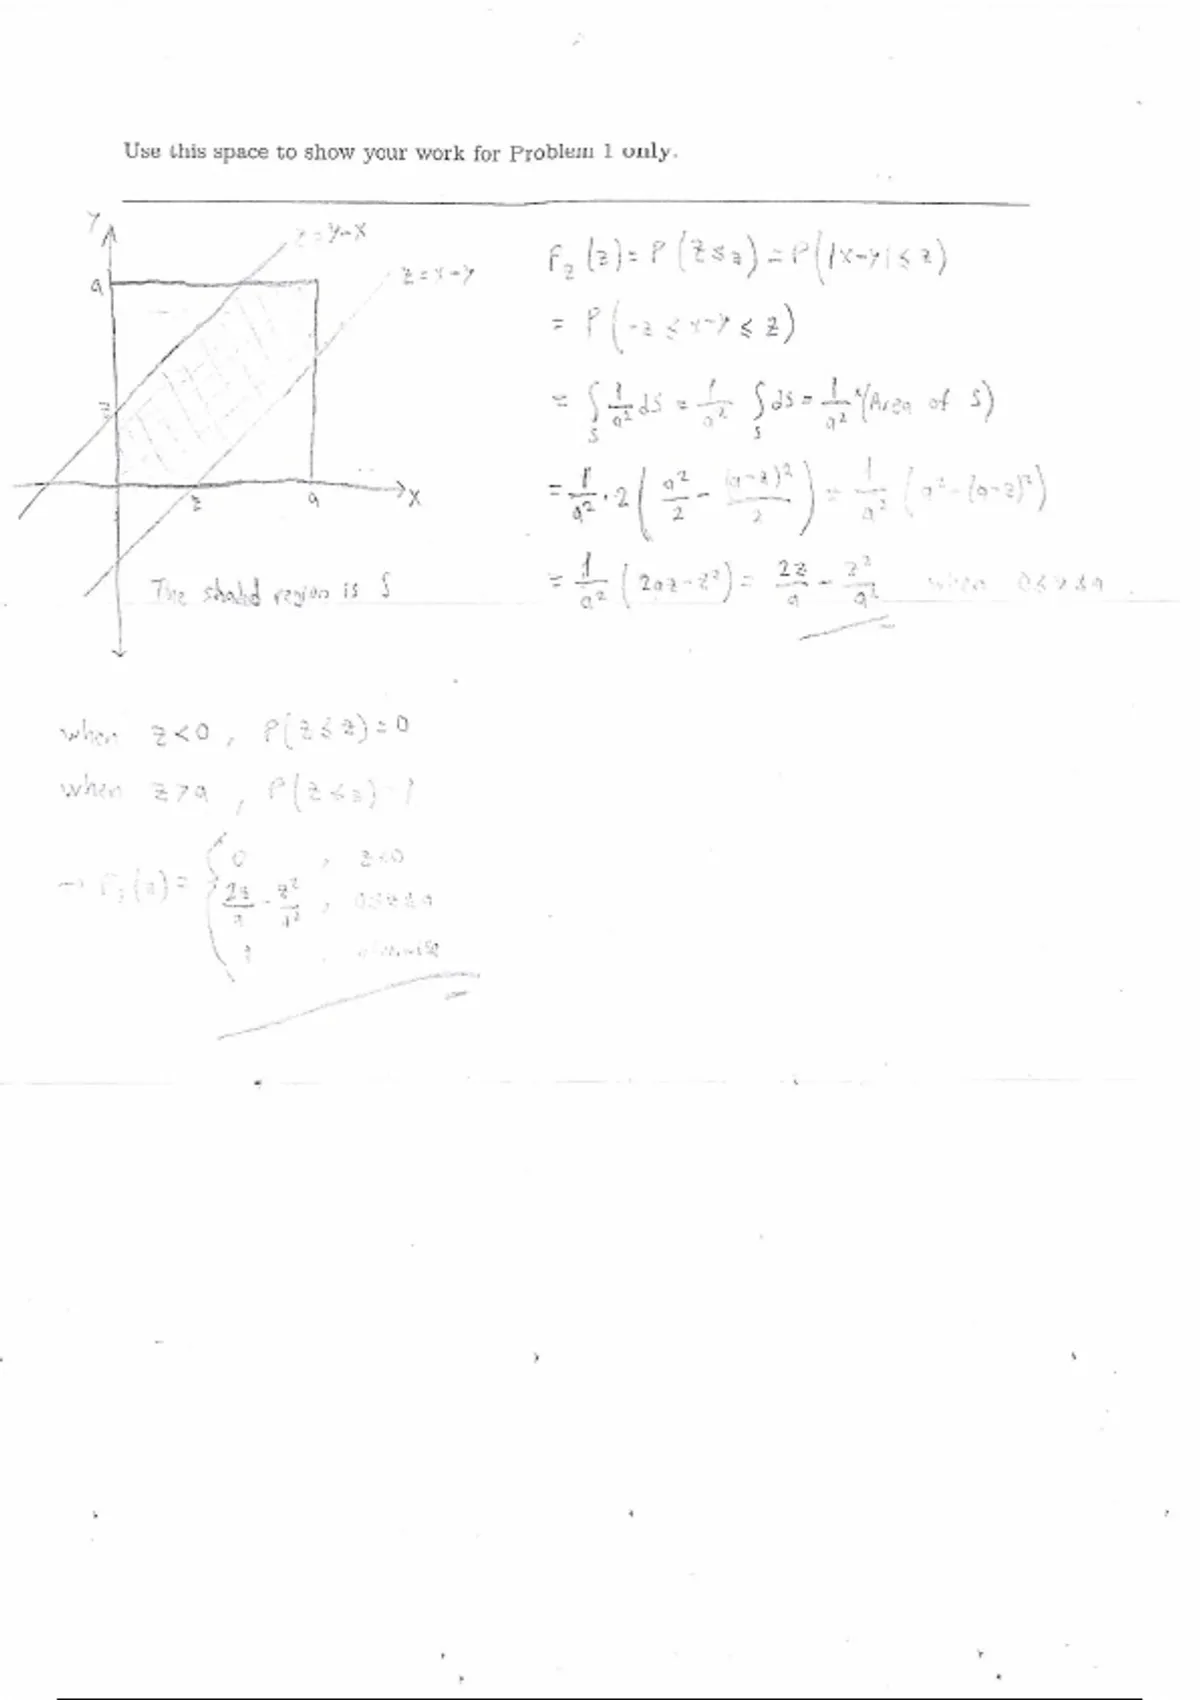 Use this space to show your work for Problem 1 only.
y
z = y-x
z = x-y
a
z
z
a
x
The shaded region is S
F_Z (z) = P (Z ≤ z) = P(|x-y| ≤ z)
= P (-z ≤ x-y ≤ z)
= ∫_S 1/a² ds = 1/a² ∫_S ds = 1/a² *(Area of S)
= 1/a² · 2 ( a²/2 - (a-z)²/2 ) = 1/a² (a² - (a-z)²)
= 1/a² ( 2az - z² ) = 2z/a - z²/a² when 0 ≤ z ≤ a
when z < 0 , P(Z ≤ z) = 0
when z > a , P(Z ≤ z) = 1
→ F_Z (z) = { 0 , z<0
2z/a - z²/a² , 0 ≤ z ≤ a
1 , otherwise